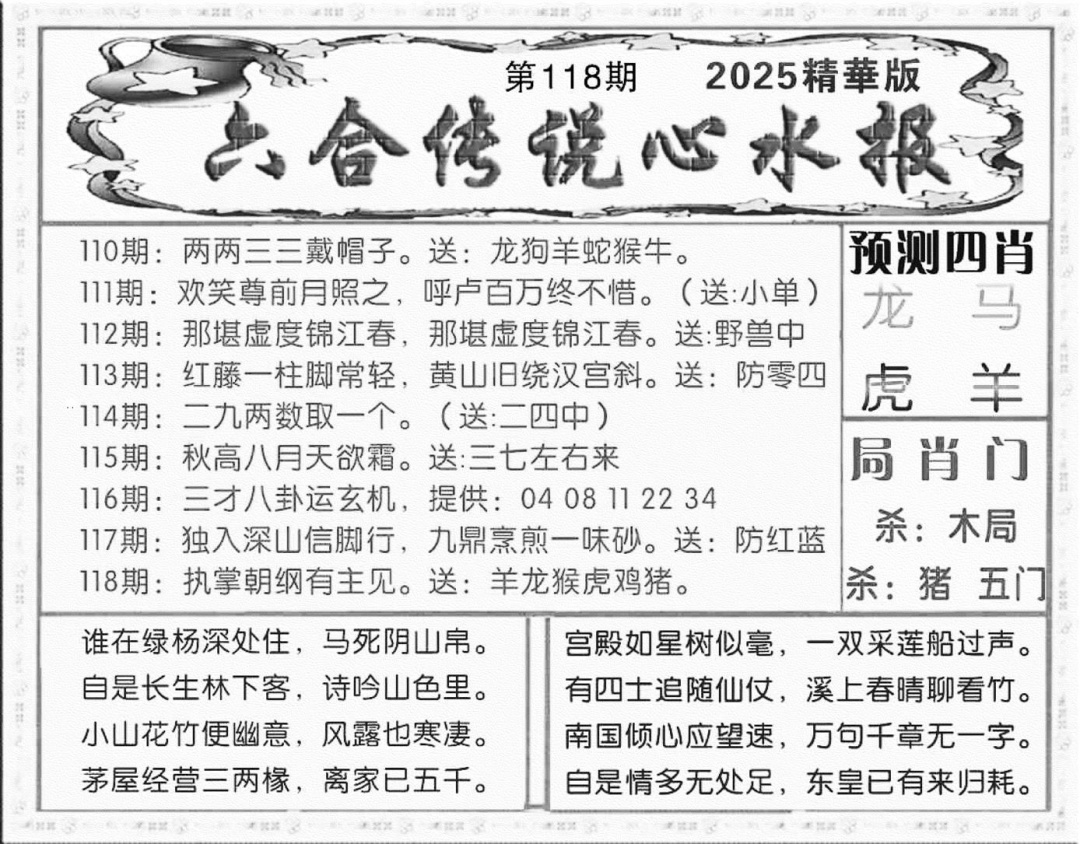 第118期 2025精華版
六合传说心水报
110期：两两三三戴帽子。送：龙狗羊蛇猴牛。
111期：欢笑尊前月照之，呼卢百万终不惜。（送:小单）
112期：那堪虚度锦江春，那堪虚度锦江春。送:野兽中
113期：红藤一柱脚常轻，黄山旧绕汉宫斜。送：防零四
114期：二九两数取一个。（送:二四中）
115期：秋高八月天欲霜。送:三七左右来
116期：三才八卦运玄机，提供：04 08 11 22 34
117期：独入深山信脚行，九鼎烹煎一味砂。送：防红蓝
118期：执掌朝纲有主见。送：羊龙猴虎鸡猪。
预测四肖
龙 马
虎 羊
局肖门
杀：木局
杀：猪 五门
谁在绿杨深处住，马死阴山帛。
自是长生林下客，诗吟山色里。
小山花竹便幽意，风露也寒凄。
茅屋经营三两椽，离家已五千。
宫殿如星树似毫，一双采莲船过声。
有四士追随仙仗，溪上春晴聊看竹。
南国倾心应望速，万句千章无一字。
自是情多无处足，东皇已有来归耗。